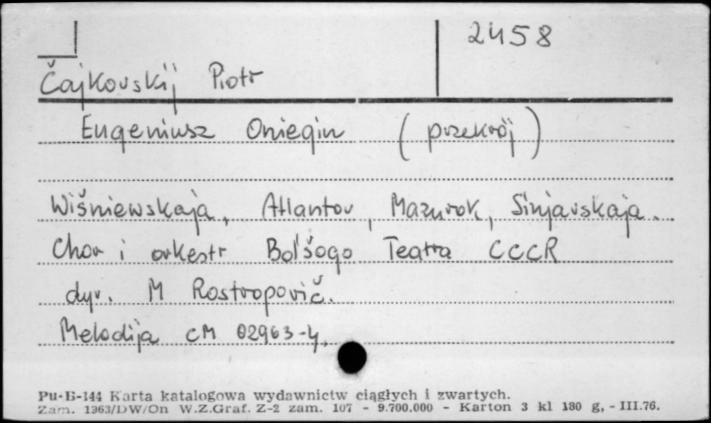 2458
Čajkovskij Piotr
Eugeniusz Oniegin (przekrój)
Wiśniewskaja, Atlantov, Mazurok, Sinjavskaja.
Chor i orkestr Bol'šogo Teatra CCCR
dyr. M Rostropovič.
Melodija CM 02963-4,
Pu-B-144 Karta katalogowa wydawnictw ciągłych i zwartych.
Zam. 1363/DW/On W.Z.Graf. Z-2 zam. 107 - 9.700.000 - Karton 3 kl 180 g, - III.76.